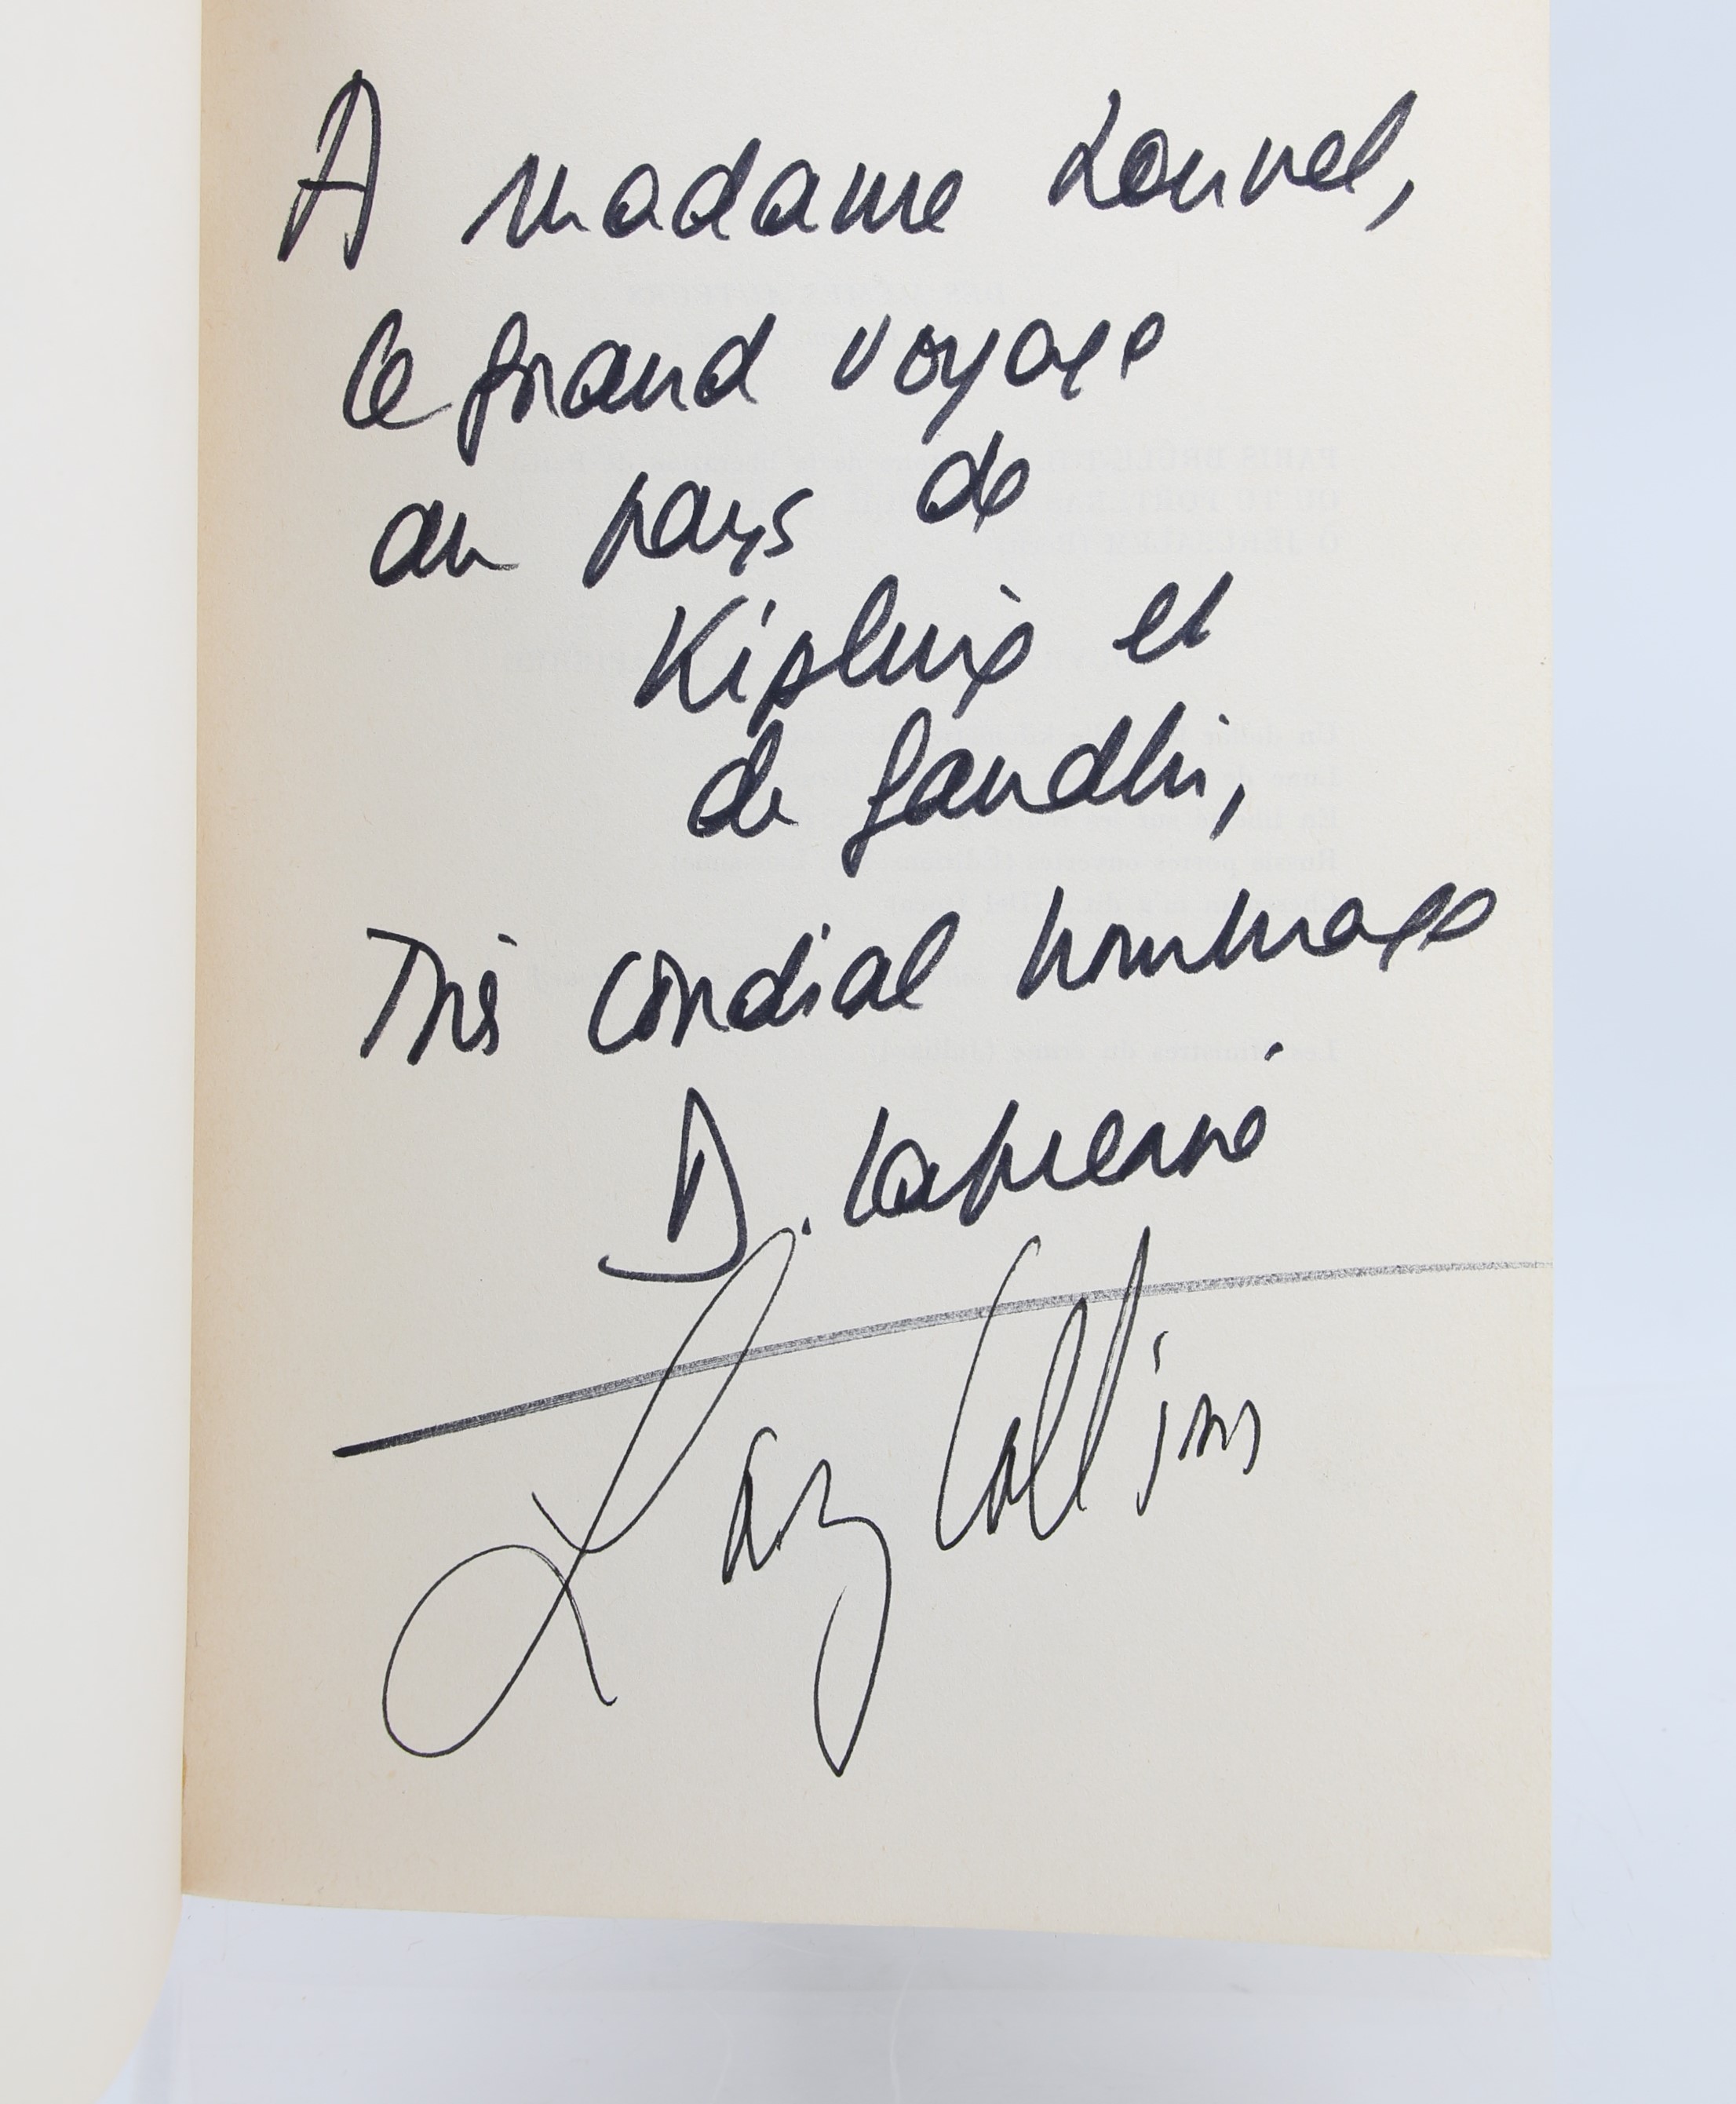 A madame Louvel,
le grand voyage
au pays de
Kipling et
de Gandhi,
Très cordial hommage
D. Lapierre
Larry Collins